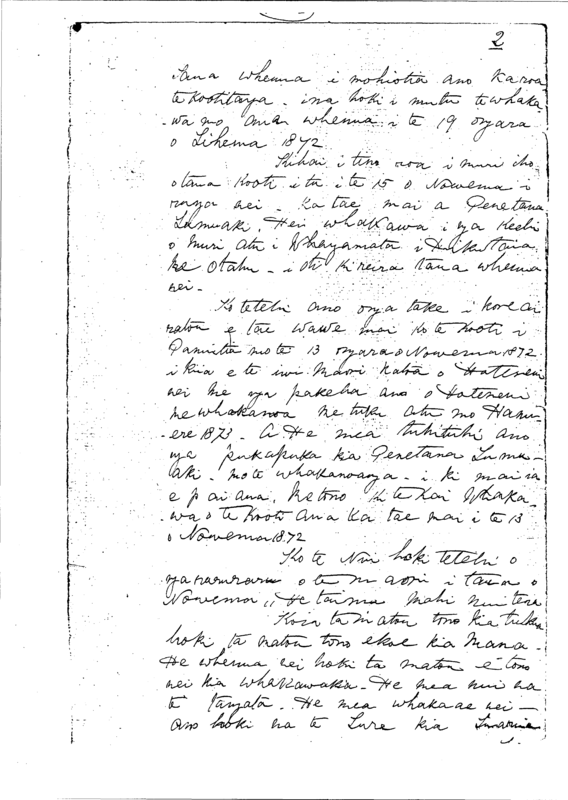 2
taua whenua i mohiotia ano Karoa
te Kootitaŋa. ina hoki i mutu te whaka
wa mo aua whenua i te 19 oŋa ra
o Tihema 1872
Kihai i tino roa i muri iho
otaua Kooti i tu i te 15 o Nowema i
nei. Ka tae mai a Penetana
Tumuaki. Hei whakawa i ŋa Keehi
o muri atu i Whaŋamata i Hikutaia
ke Otahu - i oti Kireira taua whenua
nei.
Ko tetehi ano oŋa take i kore ai
matou e tae wawe mai ko te Kooti i
Panuitia mo te 13 oŋa ra o Nowema 1872
i kia e te iwi Maori katoa o Hauraki
nei me ŋa pakeha ano o Hauraki
me whakanoa me tuku atu mo Hanu-
ere 1873. A He mea tuhituhi ano
ŋa pukapuka kia Penetana Tumu-
aki. mo te whakanoaŋa. i ki mai ia
e pai ana, me tono Ki te Kai Whaka-
wa o te Kooti Ana Ka tae mai i te 13
o Nowema 1872
Ko te Nui hoki tetehi o
ŋa raruraru o te maori i taua
Nowema,, He taima Mahi nui tera
Koia ta matou tono kia tukua
hoki ta matou tono ekoe kia mana.
He whenua nei hoki ta matou e tono
nei kia whakawakia. He mea nui na
te taŋata. He mea whakaae nei -
ano hoki na te Ture kia